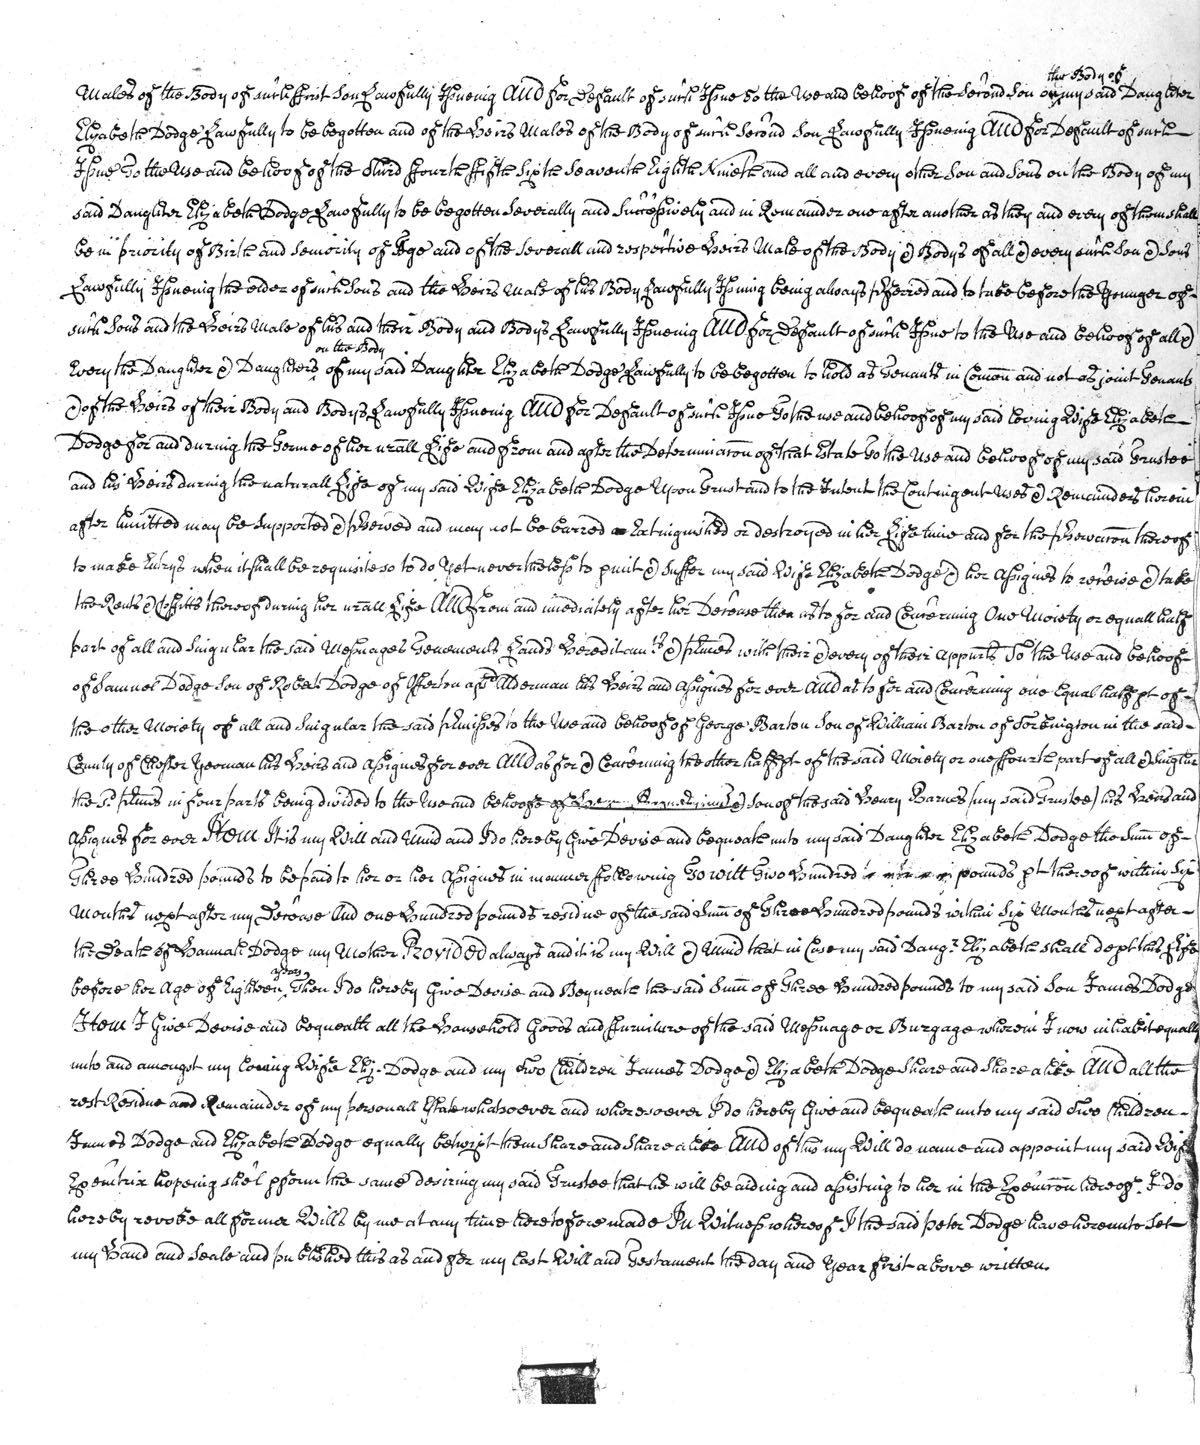 Males of the Body of such ffirst Son Lawfully Issueing And for Default of such Issue To the Use and behoof of the Second Son on the Body of my said Daughter
Elizabeth Dodge Lawfully to be begotten and of the Heirs Males of the Body of such Second Son Lawfully Issueing And for Default of such
Issue To the Use and behoof of the Third ffourth ffifth Sixth Seaventh Eighth Nineth and all and every other Son and Sons on the Body of my
said Daughter Elizabeth Dodge Lawfully to be begotten Severally and Successively and in Remainder one after another as they and every of them shall
be in priority of Birth and Seniority of Age and of the Severall and respective Heirs Male of the Body & Bodys of all & every such Son & Sons
Lawfully Issueing the elder of such Sons and the Heirs Male of his Body Lawfully Issuing being always pferred and to take before the Younger of
such Sons and the Heirs Male of his and their Body and Bodys Lawfully Issueing And for Default of such Issue to the Use and behoof of all &
Every the Daughter & Daughters on the Body of my said Daughter Elizabeth Dodge Lawfully to be begotten to hold as Tenants in Comon and not as joint Tenants
& of the Heirs of their Body and Bodys Lawfully Issueing And for Default of such Issue To the use and behoof of my said loving Wife Elizabeth
Dodge for and during the Terme of her nrall Life and from and after the Determinacon of that Estate To the Use and behoof of my said Trustee
and his Heirs during the naturall Life of my said Wife Elizabeth Dodge Upon Trust and to the Intent the Contingent Uses & Remainders herein
after limitted may be Supported & pserved and may not be barred Extinguished or destroyed in her Life time and for the pservacon thereof
to make Entrys when it shall be requisite so to do Yet nevertheless to pmit & Suffer my said Wife Elizabeth Dodge & her Assignes to receive & take
the Rents & Proffitts thereof during her nrall Life And from and imediately after her Decease then as to for and Concerning One Moiety or equall half
part of all and Singular the said Messuages Tenements Lands Hereditamts & pmes with their & every of their Appurts To the Use and behoof
of Samuel Dodge Son of Robert Dodge of Alderman his Heirs and Assignes for ever And as to for and Concerning one Equal halfe pt of
the other Moiety of all and Singular the said pmisses to the Use and behoof of George Barton Son of William Barton of Torkington in the said
County of Chester Yeoman his Heirs and Assignes for ever And as for & Concerning the other halfe pt of the said Moiety or one ffourth part of all & Singular
the sd pmes in four parts being divided to the Use and behoofe of Son of the said Henry Barnes (my said Trustee) his Heirs and
Assignes for ever Item It is my Will and Mind and I do hereby Give Devise and bequeath unto my said Daughter Elizabeth Dodge the Sum of
Three Hundred pounds to be paid to her or her Assignes in manner ffollowing To witt Two Hundred pounds pt thereof within Six
Months next after my Decease And one Hundred pounds residue of the said Sum of Three Hundred pounds within Six Months next after
the Death of Hannah Dodge my Mother Provided always and it is my Will & Mind that in Case my said Daugr Elizabeth shall dept this Life
before her Age of Eighteen years Then I do hereby Give Devise and Bequeath the said Sum of Three Hundred pounds to my said Son James Dodge
Item I Give Devise and bequeath all the Household Goods and ffurniture of the said Messuage or Burgage wherein I now inhabit equally
unto and amongst my loving Wife Eliz. Dodge and my Two Children James Dodge & Elizabeth Dodge Share and Share alike And all the
rest Residue and Remainder of my personall Estate whatsoever and wheresoever I do hereby Give and bequeath unto my said Two Children
James Dodge and Elizabeth Dodge equally betwixt them Share and Share alike And of this my Will do name and appoint my said Wife
Execûtrix hopeing she'l pform the same desiring my said Trustee that he will be aiding and assisting to her in the Execucon hereof. I do
hereby revoke all former Wills by me at any time heretofore made In Witness whereof I the said Peter Dodge have hereunto Set
my Hand and Seale and published this as and for my last Will and Testament the day and Year first above written.